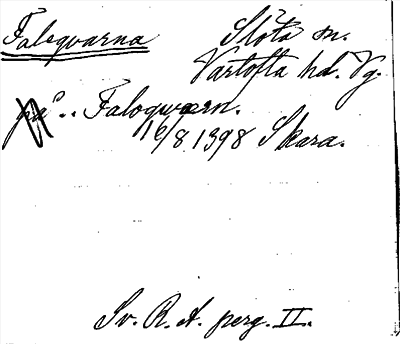 Falegvarna Slöta sn.
Vartofta hd. Vg.
på .. Falogværn.
16/8 1398 Skara.
Sv. R. A. perg. II.